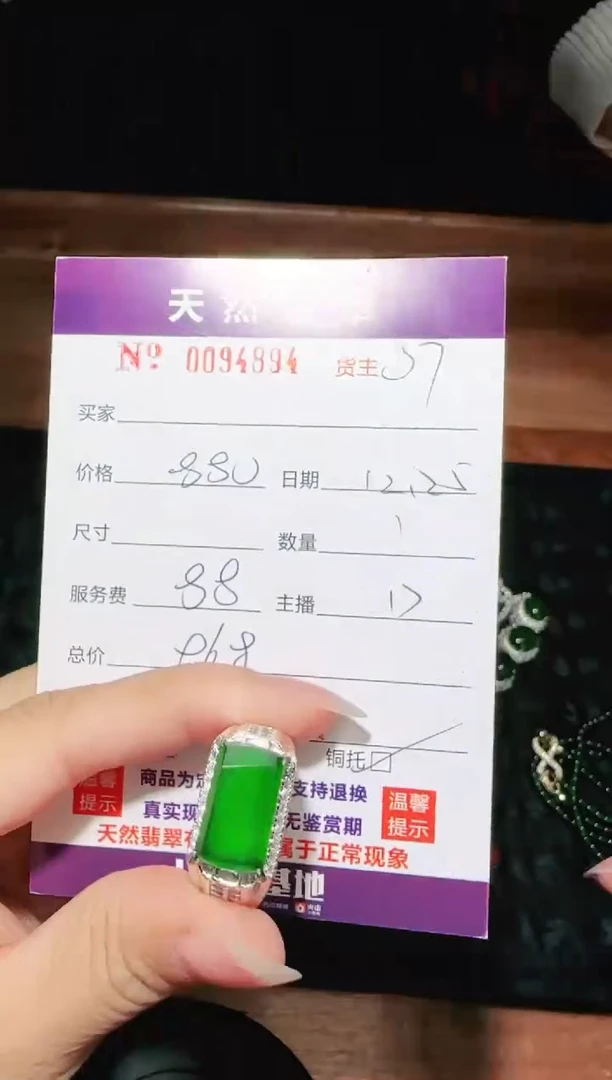 天然
Nº 0094894 货主 37
买家
价格 880 日期 12.25
尺寸 数量 1
服务费 88 主播 17
总价 968
铜托
温馨提示 商品为 支持退换 温馨提示
真实现 无鉴赏期
天然翡翠 属于正常现象
基地